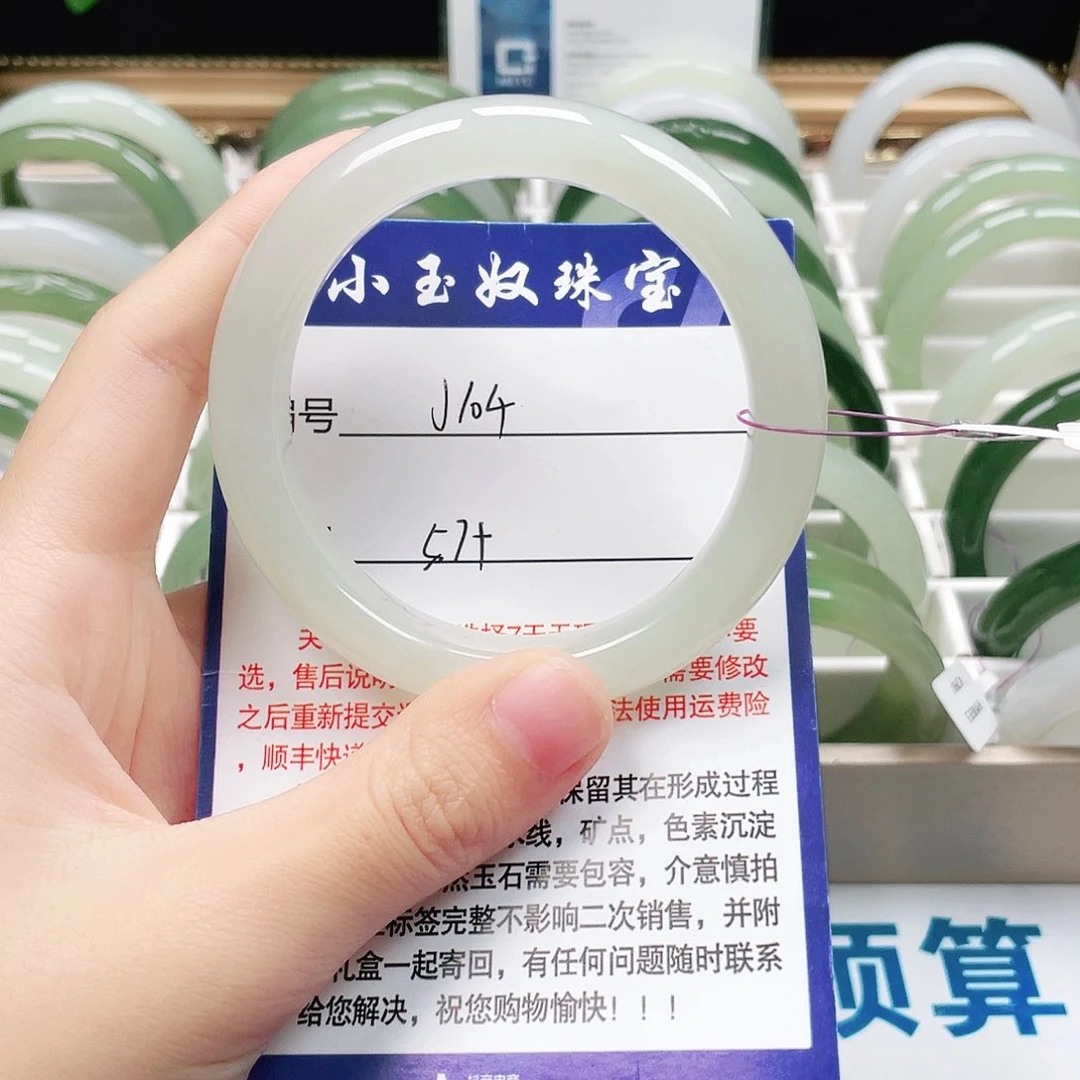 小玉奴珠宝
号 J104
57+
关 选择7天无理 要
选，售后说明 需要修改
之后重新提交 法使用运费险
，顺丰快递
保留其在形成过程
水线，矿点，色素沉淀
然玉石需要包容，介意慎拍
标签完整不影响二次销售，并附
礼盒一起寄回，有任何问题随时联系
给您解决，祝您购物愉快！！！
预算